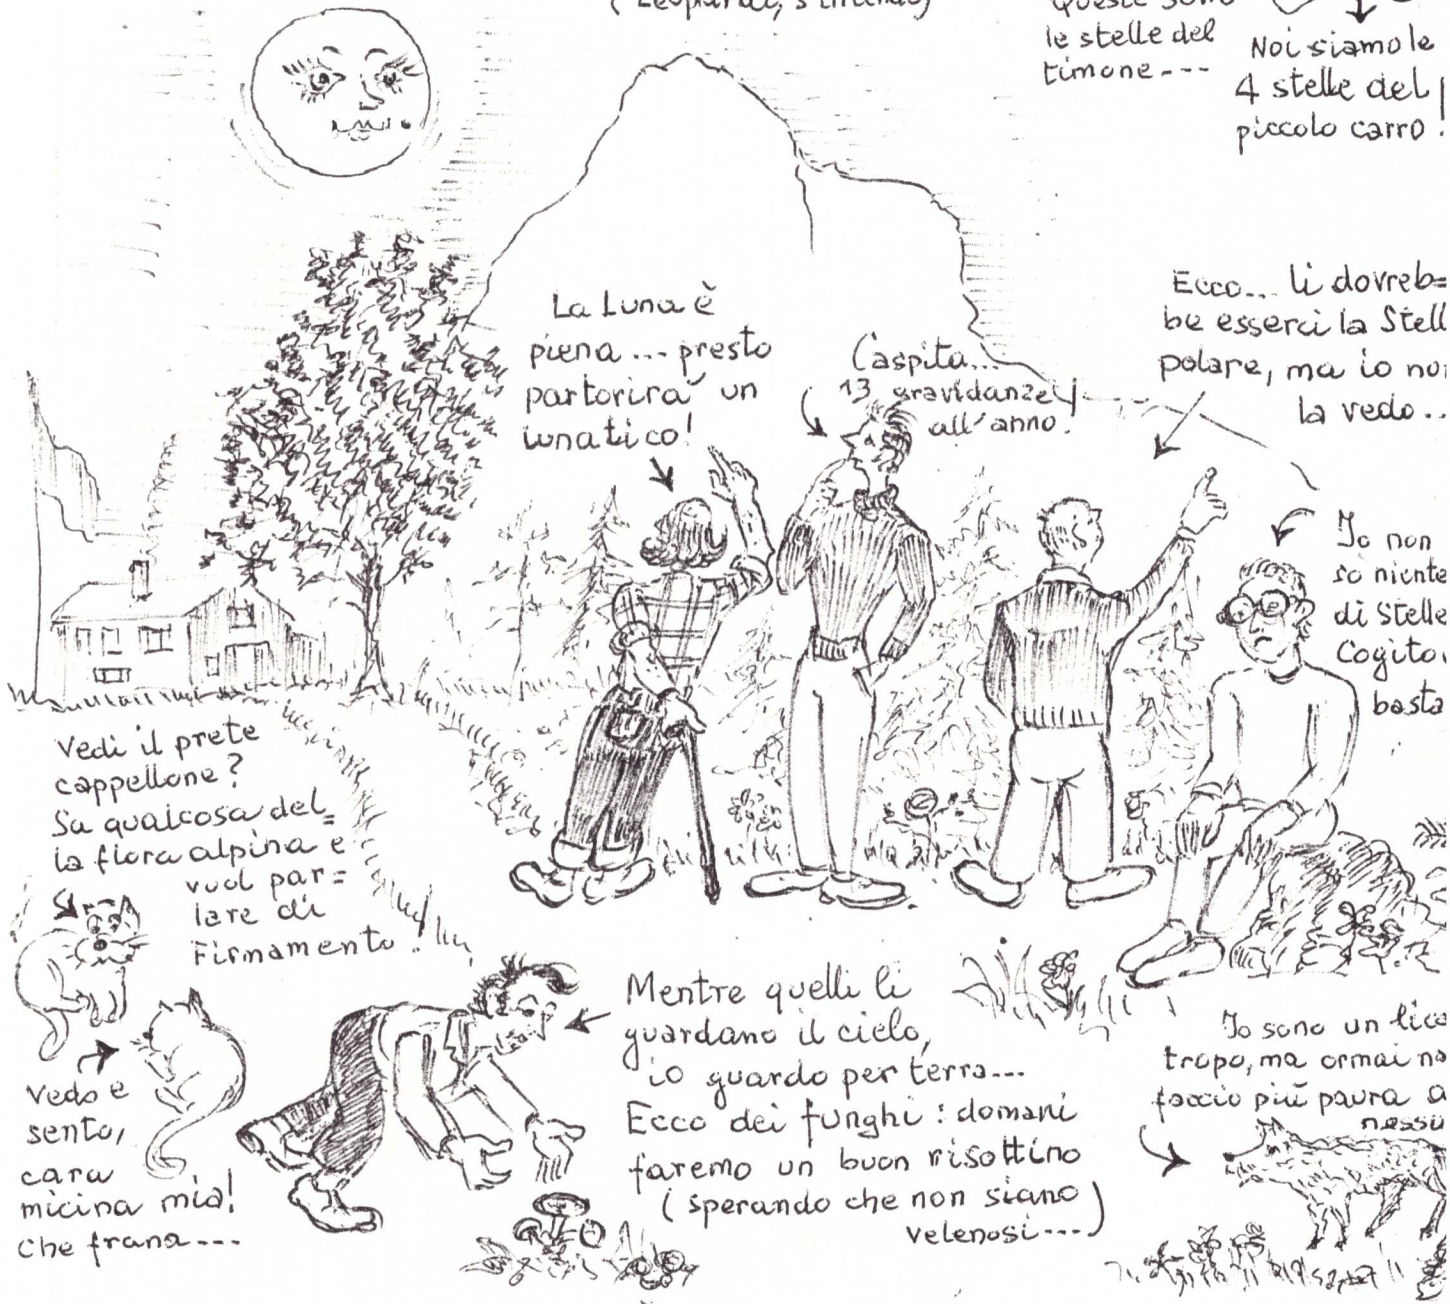 ( Leopardi, s'intende)
Queste sono
le stelle del
timone ---
Noi siamo le
4 stelle del
piccolo carro!
La Luna è
piena ... presto
partorirà un
lunatico!
Caspita...
13 gravidanze
all'anno!
Ecco... lì dovreb=
be esserci la Stell
polare, ma io no
la vedo..
Io non
so niente
di Stelle
Cogito,
basta
Vedi il prete
cappellone?
Sa qualcosa del=
la flora alpina e
vuol par=
lare di
Firmamento!
Vedo e
sento,
cara
micina mia!
Che frana---
Mentre quelli lì
guardano il cielo,
io guardo per terra---
Ecco dei funghi: domani
faremo un buon risottino
(sperando che non siano
velenosi----)
Io sono un lica
tropo, ma ormai no
faccio più paura a
nessu